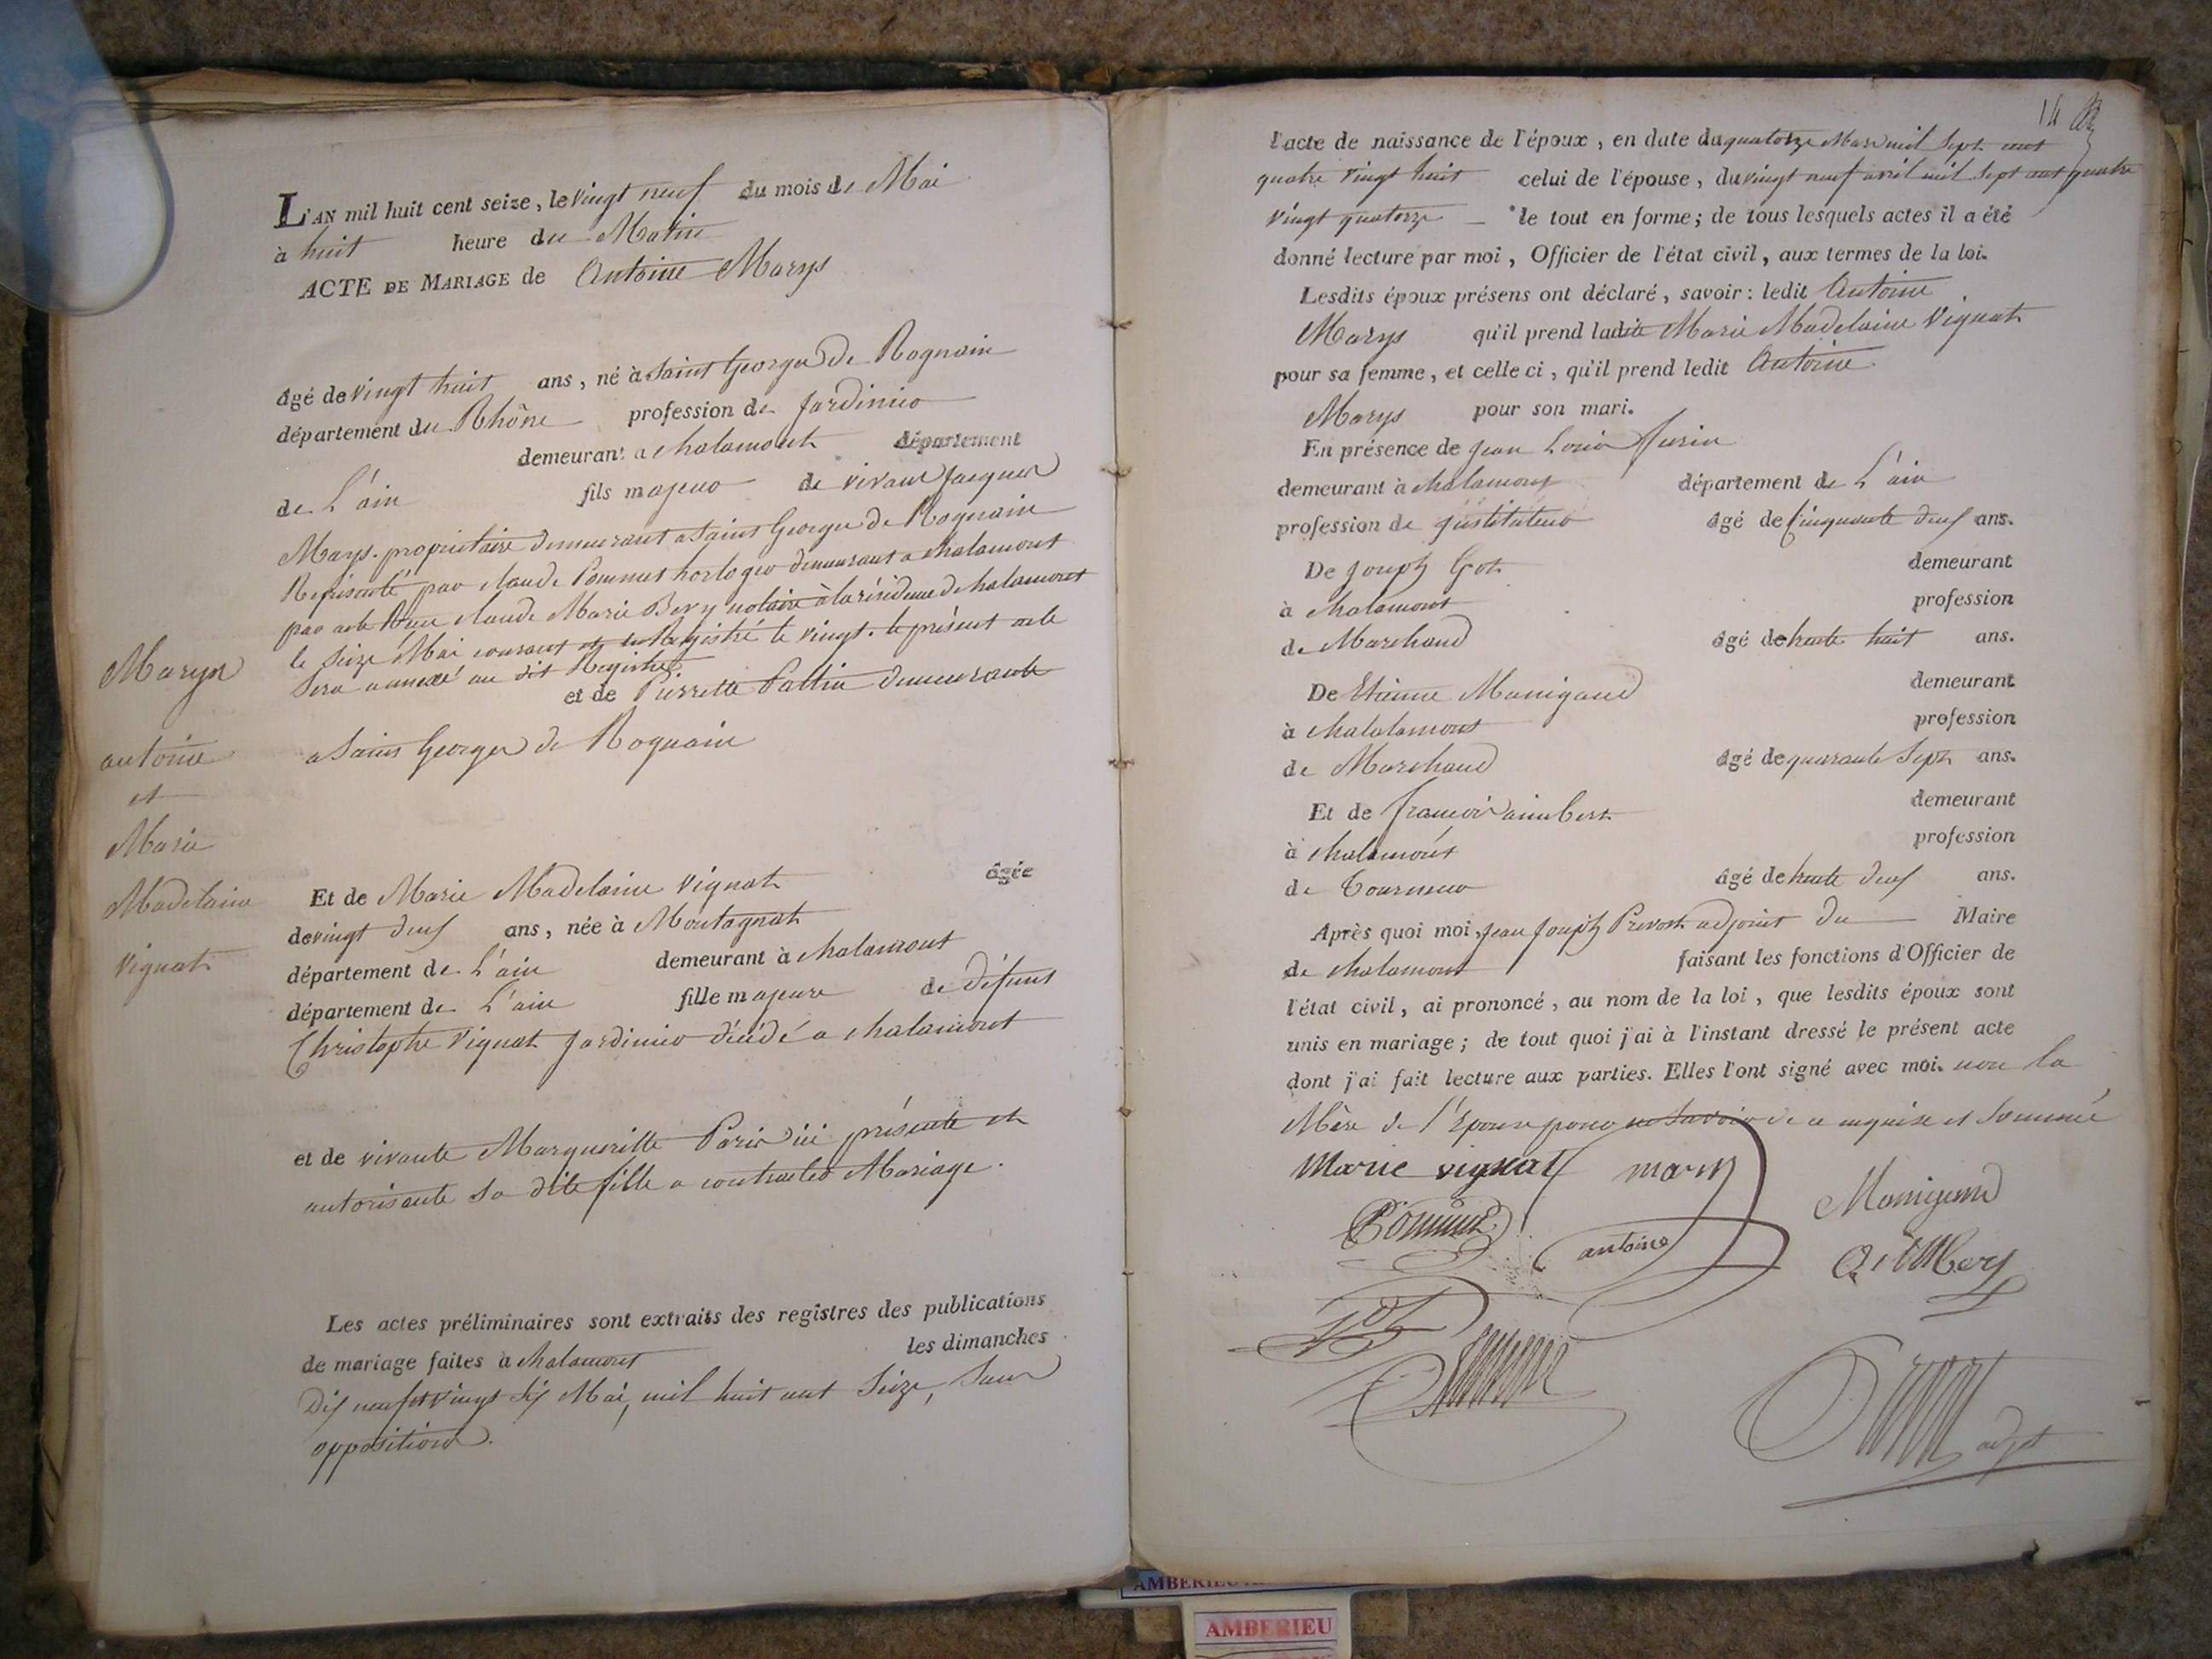 L'AN mil huit cent seize, le vingt neuf du mois de Mai
à huit heure du Matin
ACTE DE MARIAGE de Antoine Marys
âgé de vingt huit ans, né à Saint George de Rognain
département du Rhône profession de Jardinier
demeurant a chalamont département
de L'ain fils majeur de vivant Jacques
Marys. propriétaire demeurant a Saint George de Rognain
Représenté par claude Pommet horloger demeurant a chalamont
par acte claude Marie Bery notaire à la résidence de chalamont
le Seize Mai courant Registré le vingt. le présent acte
Sera annexé au dit Registre
et de Pierrette Pattin demeurante
a Saint George de Rognain
Marys
antoine
et
Marie
Madelaine
vignat
Et de Marie Madelaine Vignat âgée
de vingt deux ans, née à Montagnat
département de L'ain demeurant à chalamont
département de L'ain fille majeure de défunt
Christophe Vignat Jardinier décédé a chalamont
et de vivante Margueritte Paris ici présente et
autorisante sa dite fille a contracter Mariage.
Les actes préliminaires sont extraits des registres des publications
de mariage faites à chalamont les dimanches
Dix neuf et vingt six Mai, mil huit cent Seize, Sans
opposition.
14
l'acte de naissance de l'époux, en date du quatorze Mars mil Sept cent
quatre vingt huit celui de l'épouse, du vingt neuf avril mil sept cent quatre
vingt quatorze — le tout en forme; de tous lesquels actes il a été
donné lecture par moi, Officier de l'état civil, aux termes de la loi.
Lesdits époux présens ont déclaré, savoir: ledit Antoine
Marys qu'il prend ladite Marie Madelaine Vignat
pour sa femme, et celle ci, qu'il prend ledit Antoine
Marys pour son mari.
En présence de Jean Louis
demeurant à chalamont département de L'ain
profession de instituteur âgé de Cinquante deux ans.
De Joseph Got demeurant
à chalamont profession
de Marchand âgé de trente huit ans.
De Etienne Manigand demeurant
à chalalamont profession
de Marchand âgé de quarante Sept ans.
Et de françois aimbert demeurant
à chalamont profession
de Tourneur âgé de trente deux ans.
Après quoi moi, Jean Joseph Prevost adjoint du Maire
de chalamont faisant les fonctions d'Officier de
l'état civil, ai prononcé, au nom de la loi, que lesdits époux sont
unis en mariage; de tout quoi j'ai à l'instant dressé le présent acte
dont j'ai fait lecture aux parties. Elles l'ont signé avec moi. non la
Mère de l'Epouse pour ne Savoir de ce enquise et Sommée
Marie vignat marys
Pommet antoine Manigand
Got
adjt
AMBERIEU
AMBERIEU